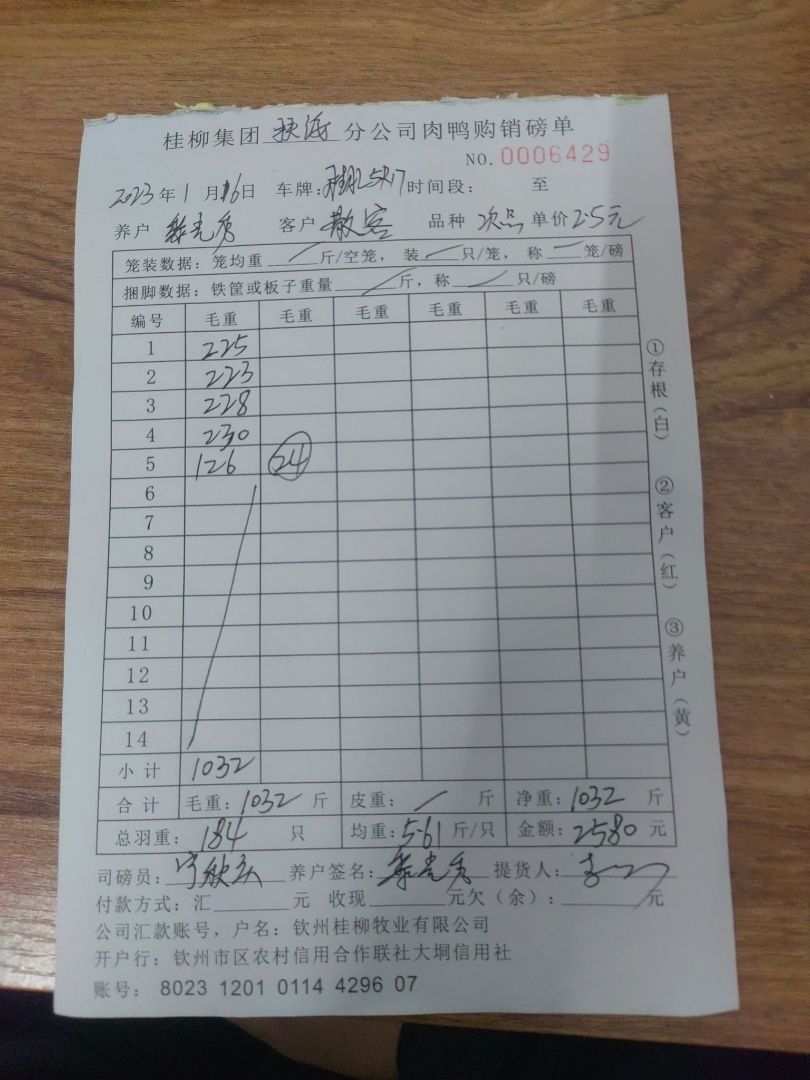 桂柳集团 分公司肉鸭购销磅单
NO. 0006429
2023年1月16日 车牌: 时间段: 至
养户 客户 散客 品种 次品 单价 2.5元
笼装数据：笼均重 / 斤/空笼，装 / 只/笼，称 / 笼/磅
捆脚数据：铁筐或板子重量 / 斤，称 / 只/磅
编号 毛重 毛重 毛重 毛重 毛重 毛重
1 225
2 223
3 228
4 230
5 126 24
6
7
8
9
10
11
12
13
14
小计 1032
合计 毛重：1032 斤 皮重：/ 斤 净重：1032 斤
总羽重：184 只 均重：5.61 斤/只 金额：2580 元
司磅员： 养户签名： 提货人：
付款方式：汇 元 收现 元欠（余）： 元
公司汇款账号，户名：钦州桂柳牧业有限公司
开户行：钦州市区农村信用合作联社大垌信用社
账号： 8023 1201 0114 4296 07
①存根（白）
②客户（红）
③养户（黄）